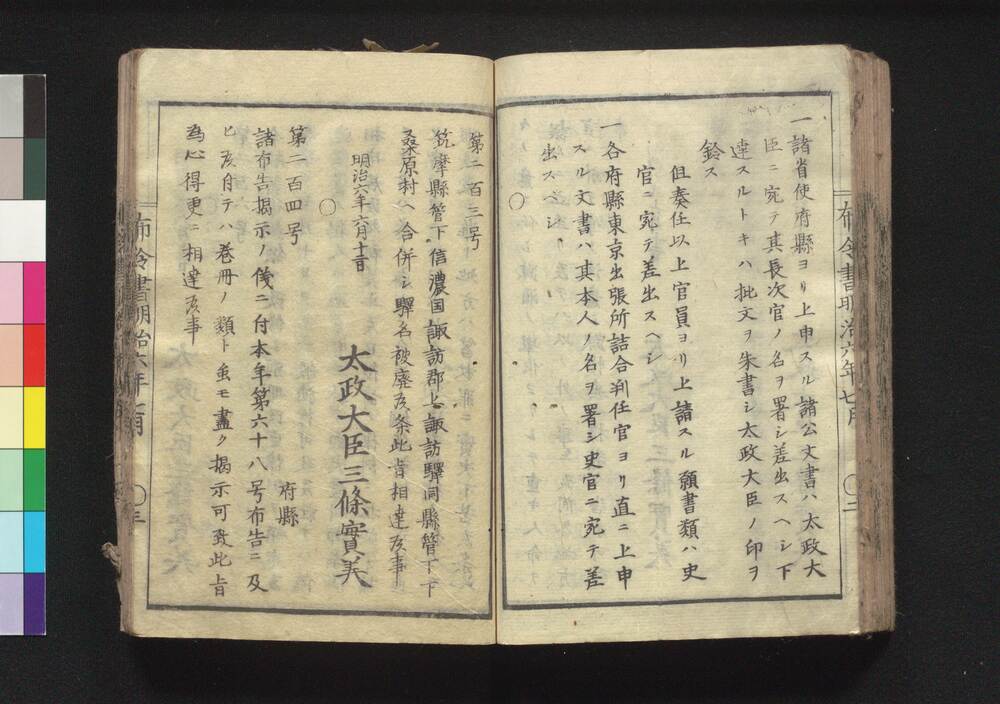 布令書明治六年七月
〇二
一諸省使府縣ヨリ上申スル諸公文書ハ太政大
臣ニ宛テ其長次官ノ名ヲ署シ差出スヘシ下
達スルトキハ批文ヲ朱書シ太政大臣ノ印ヲ
鈴ス
但奏任以上官員ヨリ上請スル願書類ハ史
官ニ宛テ差出スヘシ
一各府縣東京出張所詰合判任官ヨリ直ニ上申
スル文書ハ其本人ノ名ヲ署シ史官ニ宛テ差
出スヘシ
〇
第二百三号
筑摩縣管下信濃国諏訪郡上諏訪驛同縣管下下
桑原村ヘ合併シ驛名被廢候条此旨相達候事
明治六年六月十二日
太政大臣三條實美
〇
第二百四号
府縣
諸布告揭示ノ儀ニ付本年第六十八号布告ニ及
ヒ候自テハ巻冊ノ類ト虽モ盡ク揭示可致此旨
為心得更ニ相達候事
布令書明治六年七月
〇三